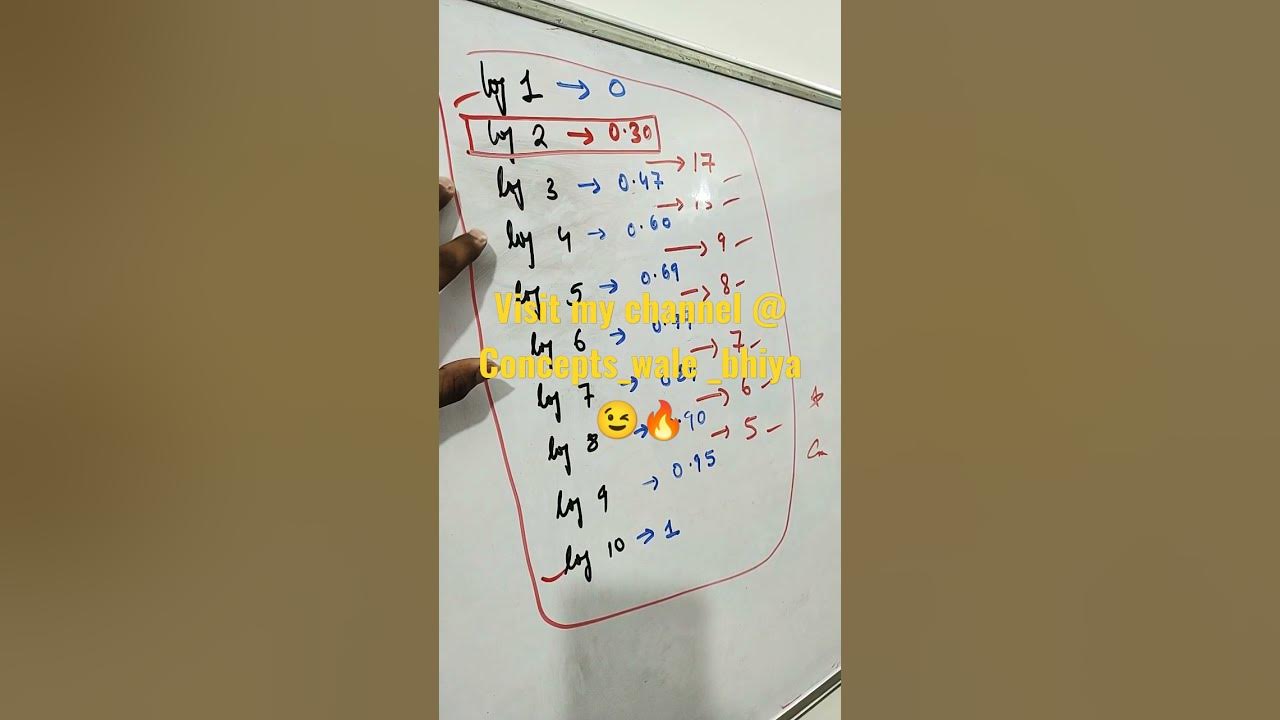 log 1 → 0
log 2 → 0.30
→ 17
log 3 → 0.47
→ 13 –
log 4 → 0.60
→ 9 –
log 5 → 0.69
→ 8 –
log 6 →
→ 7 –
log 7 →
→ 6 –
log 8 → .90
→ 5 –
log 9 → 0.95
log 10 → 1
Visit my channel @
Concepts_wale _bhiya
😉🔥